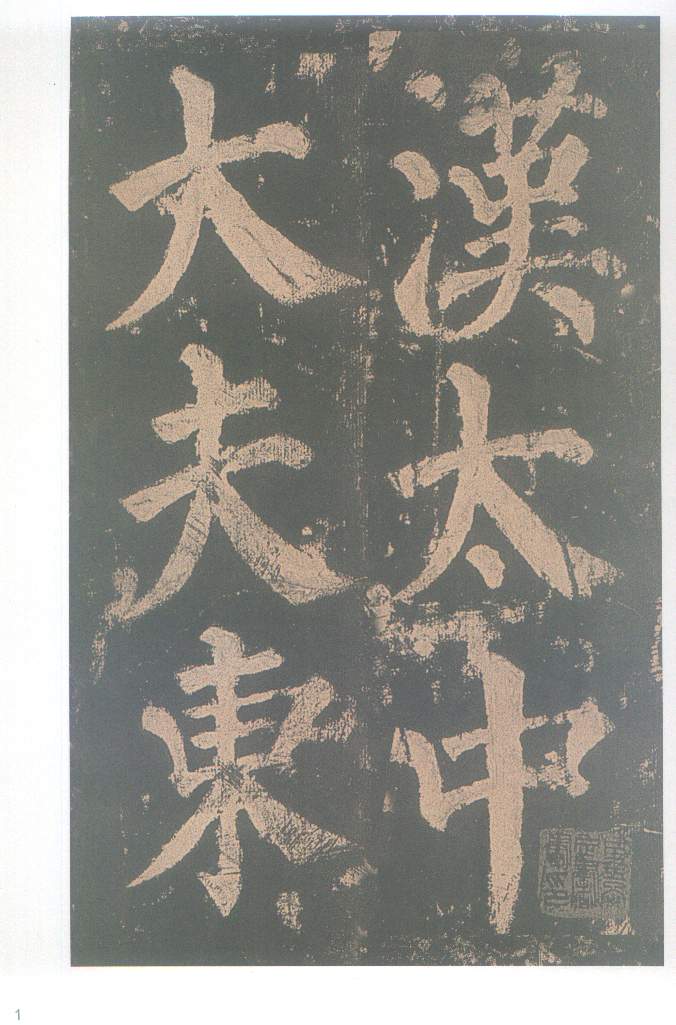 漢太中
大夫東
1